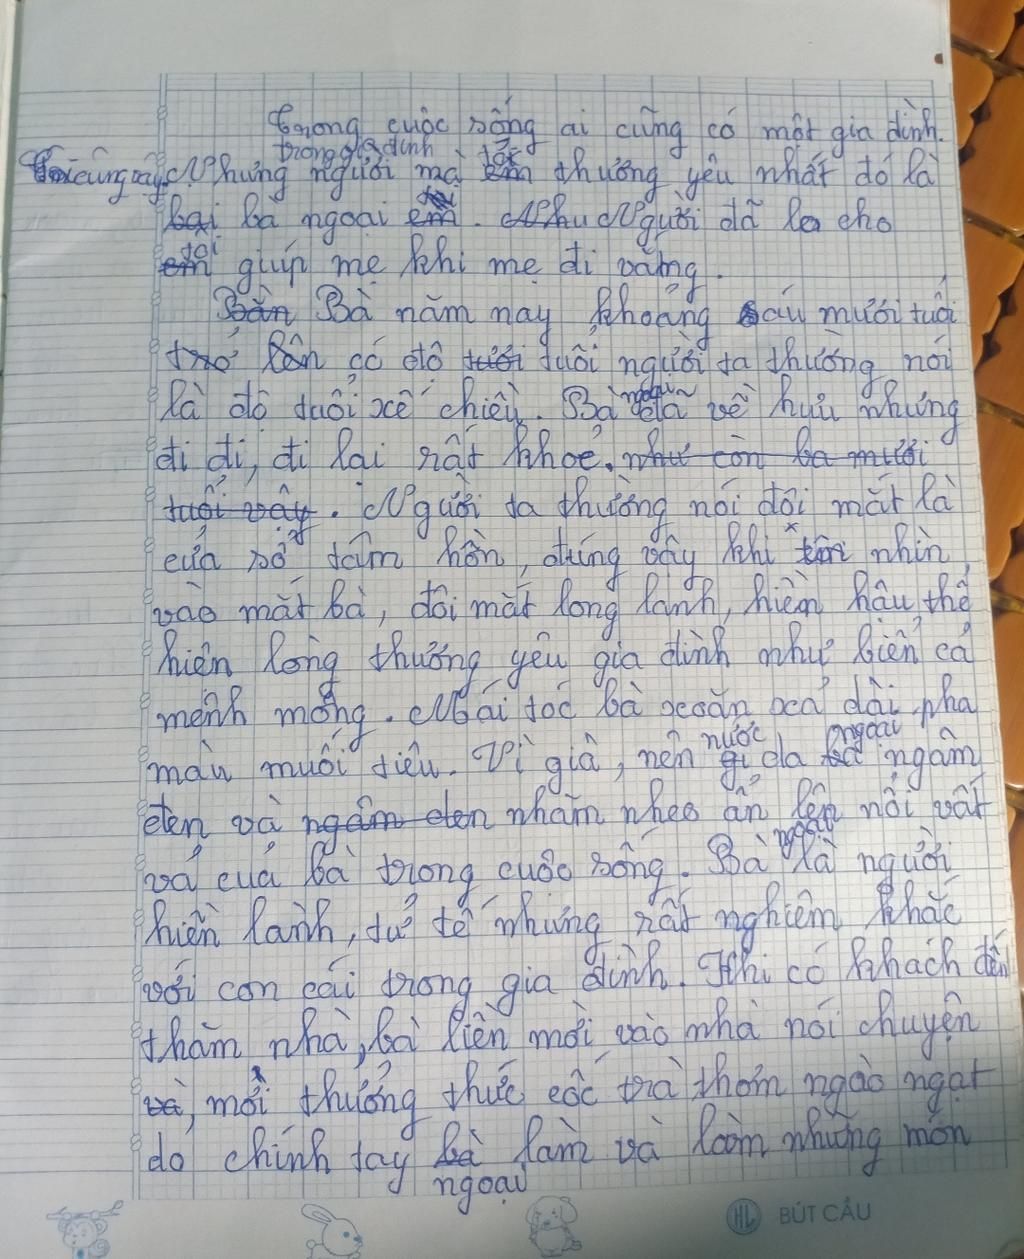 Trong cuộc sống ai cũng có một gia đình.
trong gia đình tôi
Tôi cũng vậy. Nhưng người mà em thương yêu nhất đó là
bại bà ngoại em. Như Người đã lo cho
tôi
em giúp mẹ khi mẹ đi vắng.
Bần Bà năm nay khoảng sáu mươi tuổi
trở lên có độ tuổi tuổi người ta thường nói
là độ tuổi xế chiều. Bà ngoại đã về hưu nhưng
đi đi, đi lại rất khỏe. như còn ba mươi
tuổi vậy. Người ta thường nói đôi mắt là
cửa sổ tâm hồn, đúng vậy khi nhìn
vào mắt bà, đôi mắt long lanh, hiền hậu thể
hiện lòng thương yêu gia đình như biển cả
mênh mông. Mái tóc bà xoăn xoã dài pha
màu muối tiêu. Vì già, nên nước da bà ngoại ngâm
đen và ngâm đen nhăn nheo ẩn lên nỗi vất
vả của bà trong cuộc sống. Bà ngoại là người
hiền lành, tử tế nhưng rất nghiêm khắc
với con cái trong gia đình. Khi có khách đến
thăm nhà, bà liền mời vào nhà nói chuyện
và, mời thưởng thức cốc trà thơm ngào ngạt
do chính tay bà làm và làm những món
ngoại
HL BÚT CẦU